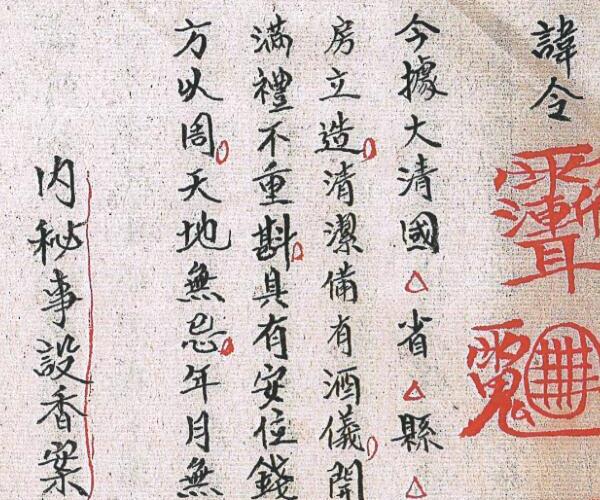 諱令
今據大清國△省△縣△
房立造清潔備有酒儀開
滿禮不重斟具有安位錢
方以周天地無忌年月無
内秘事設香案